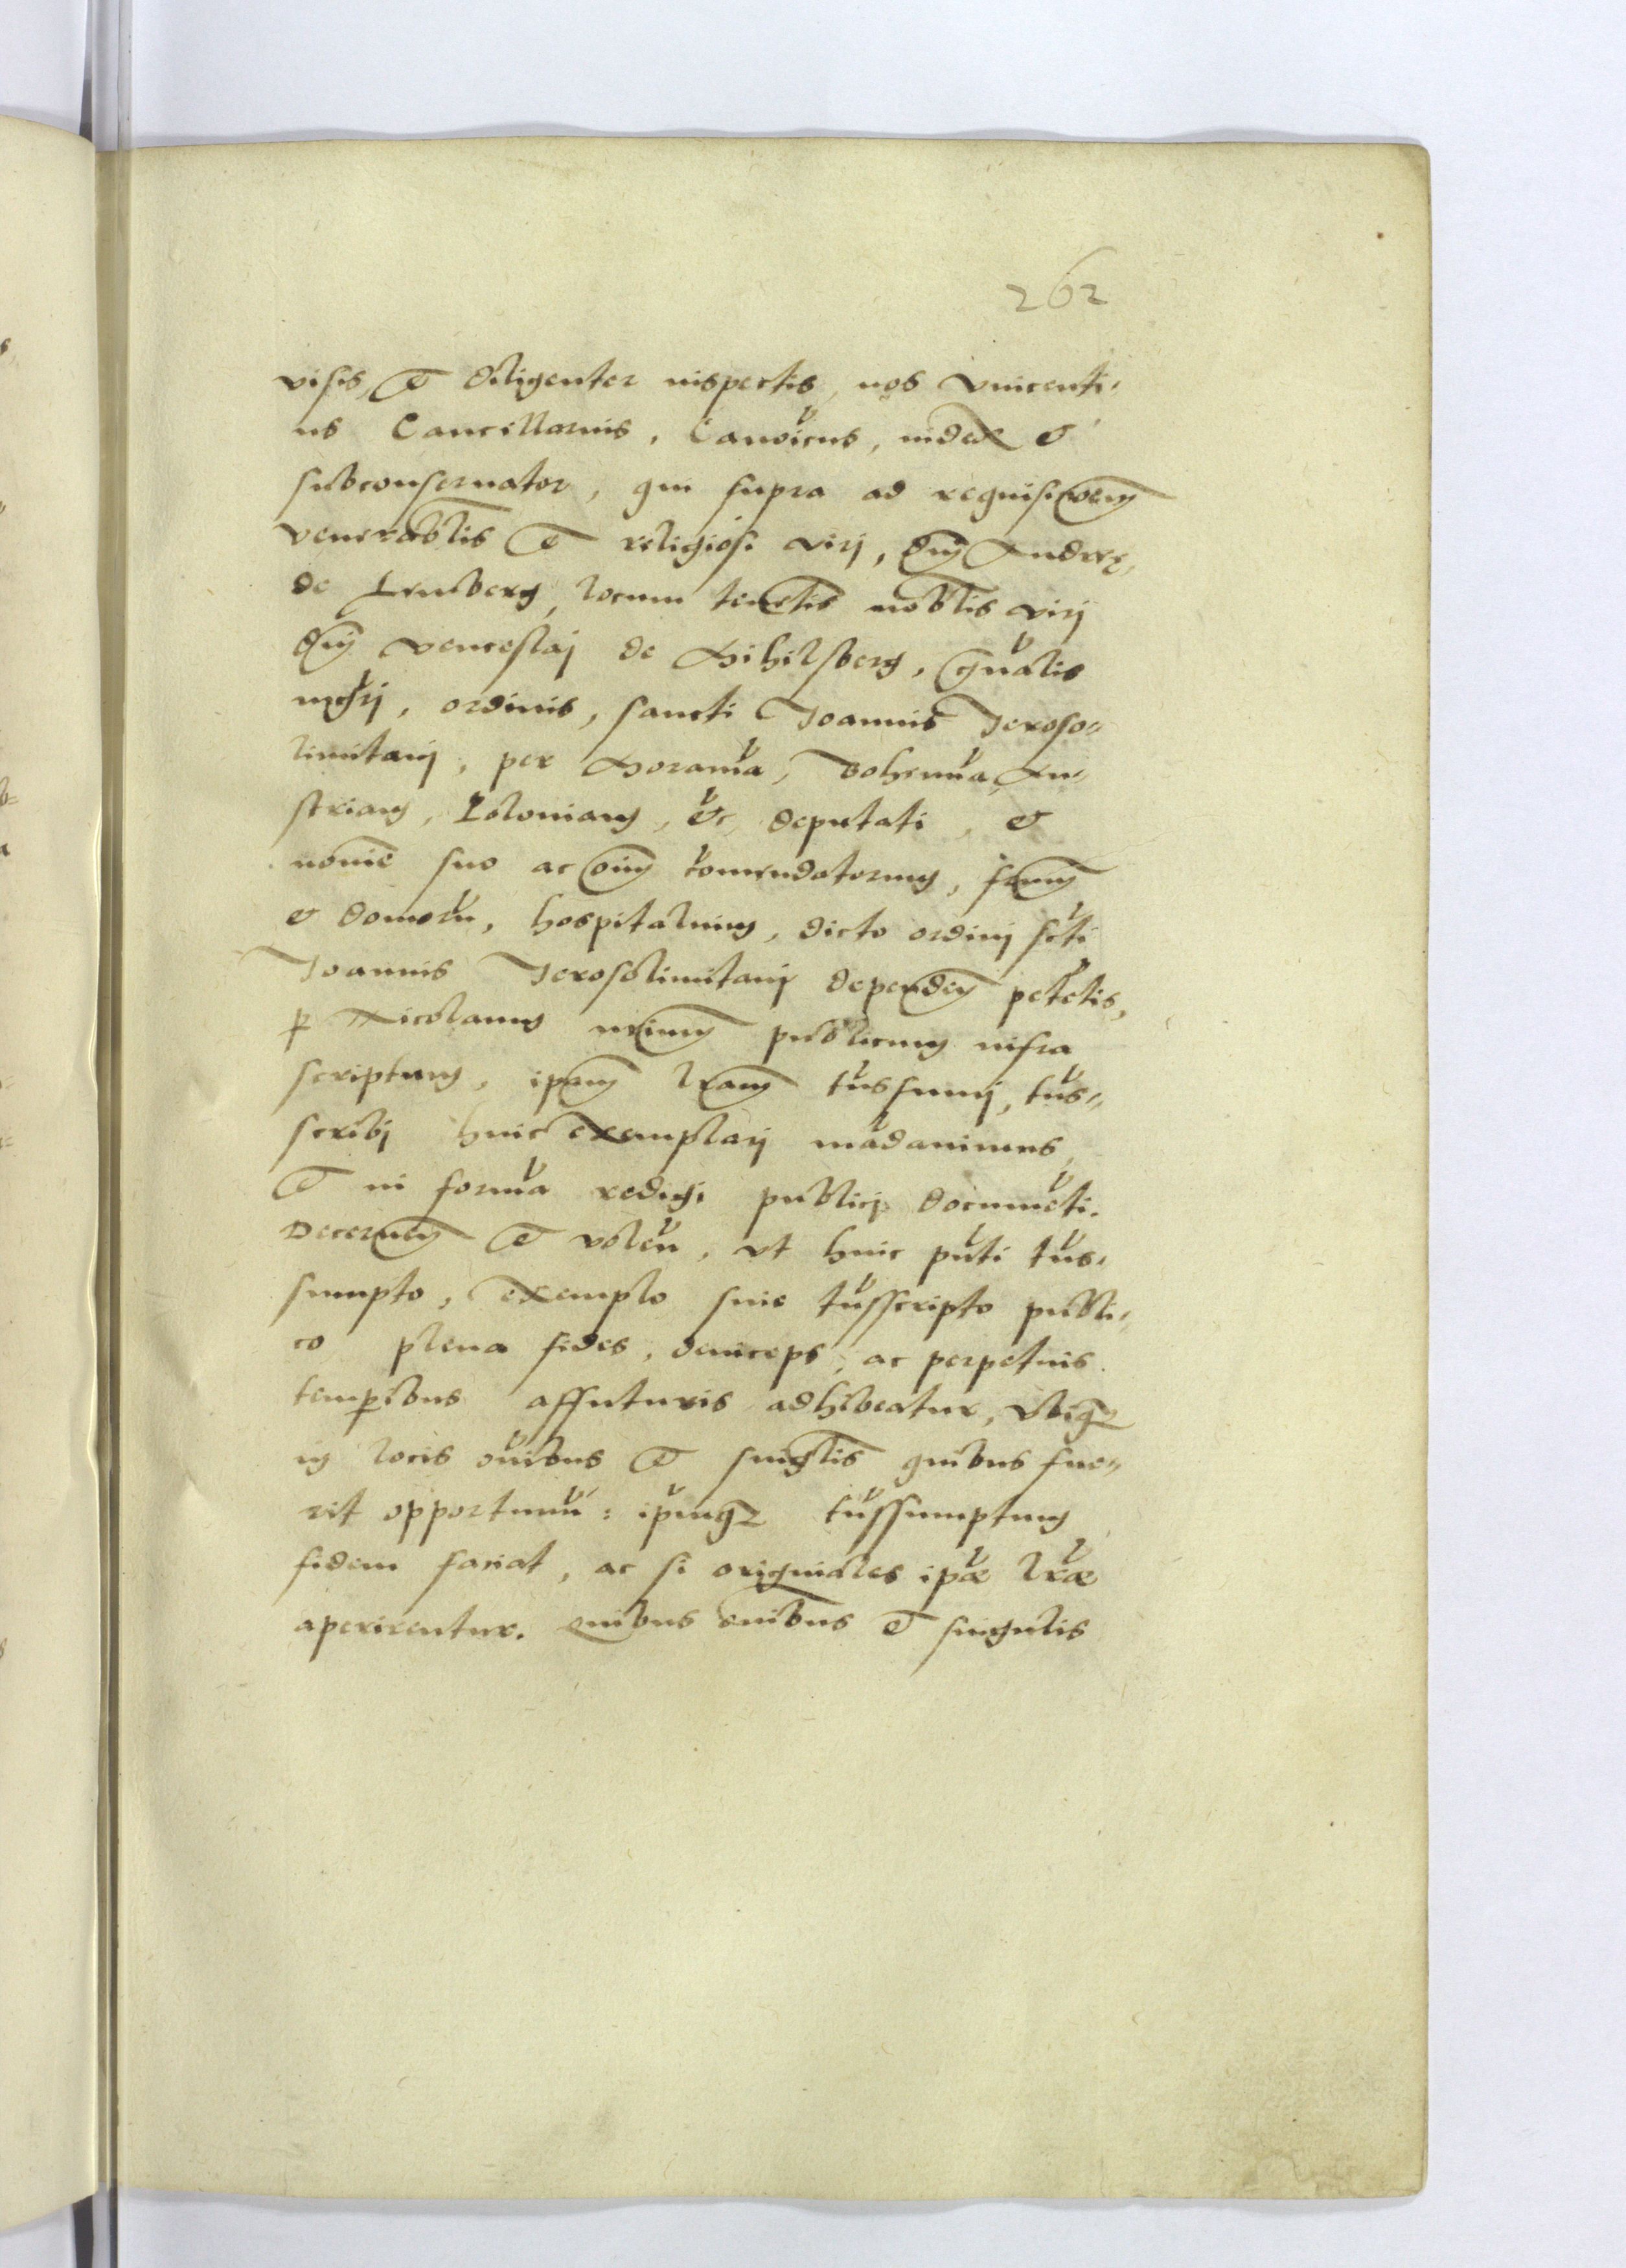 262
visis, et diligenter inspectis, nos Vincenti-
us Cancellarius, Canōicus, iudex et
subconseruator, qui supra ad requisic̄oem
venerab̄lis et religiosi viri, dn̄j Andreę,
de locum tenen̄tis nob̄lis viri
dn̄j Venceslaj de Mihilsberg, gn̄ālis
mg̃rj, ordinis, sancti Joannis Jeroso-
limitanj, per Morauiā, Bohemiā, Au-
striam, Poloniam, etc̄, deputati, et
noīe suo ac oīm cōmendatorum, fr̄um
et domorū, hospitalium, dicto ordinj scti
Joannis Jerosolimitanj dependen̄ petētis,
ꝑ Nicolaum nr̄ium publicum infra
scriptum, ip̄am lr̄am trā̄ssumj, trās-
scribj huic exemplarj mādauimus,
et in formā redigi publicj documēti.
Decernen̄ et volēn, vt huic pn̄ti trās-
sumpto, exemplo siue trā̄sscripto publi-
co plena fides, deinceps, ac perpetuis
temꝑibus affuturis adhibeatur, vbiqꝫ
in locis oīb̄us et singulis quibus fue-
rit opportunū: ip̄umqꝫ trā̄ssumptum
fidem faciat, ac si originales ip̄æ lr̄æ
aperirentur. Quibus oīb̄us et singulis